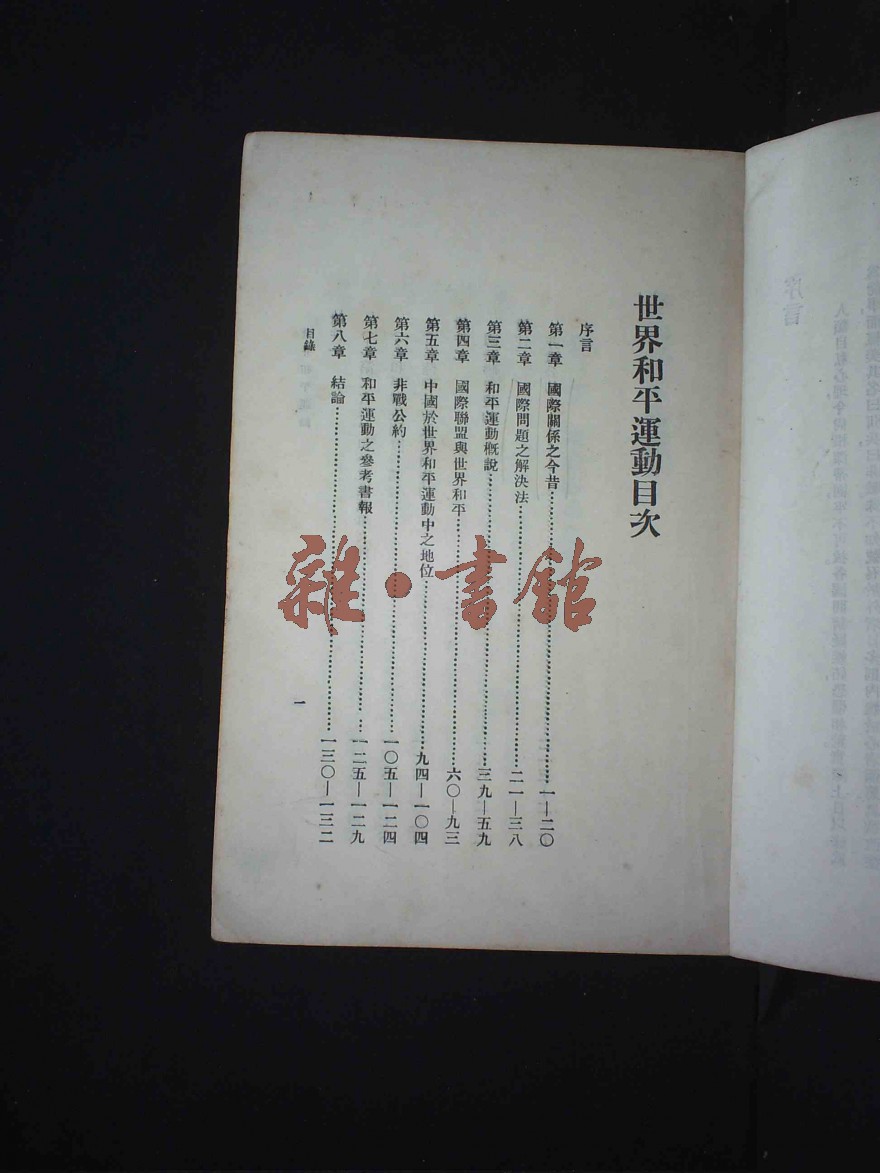 世界和平運動目次
序言
第一章 國際關係之今昔…………一—二〇
第二章 國際問題之解決法…………二一—三八
第三章 和平運動槪說…………三九—五九
第四章 國際聯盟與世界和平…………六〇—九三
第五章 中國於世界和平運動中之地位…………九四—一〇四
第六章 非戰公約…………一〇五—一二四
第七章 和平運動之參考書報…………一二五—一二九
第八章 結論…………一三〇—一三二
目錄
一
雜·書館
序言